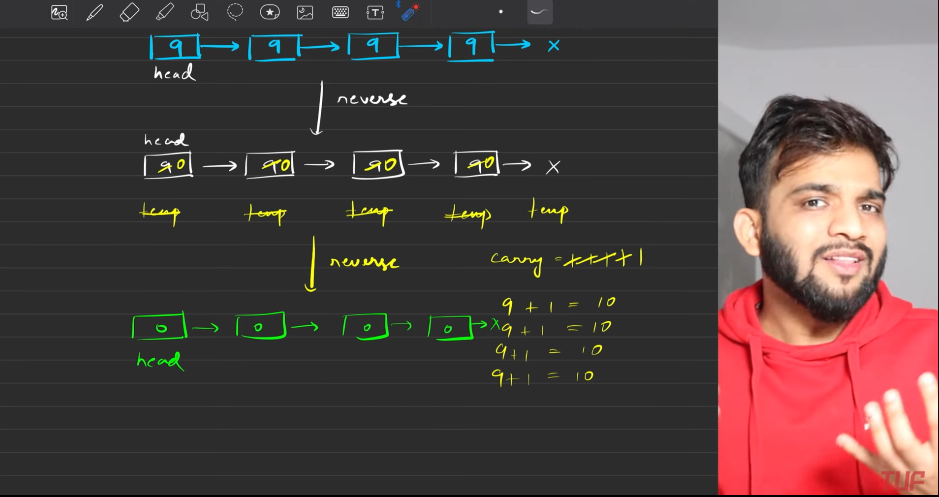 9 9 9 9 x
head
reverse
head
9 0 9 0 9 0 9 0 x
temp temp temp temp temp
reverse
carry = 1 1 1 1 1
9 + 1 = 10
0 0 0 0 x
9 + 1 = 10
9 + 1 = 10
head
9 + 1 = 10
TUF